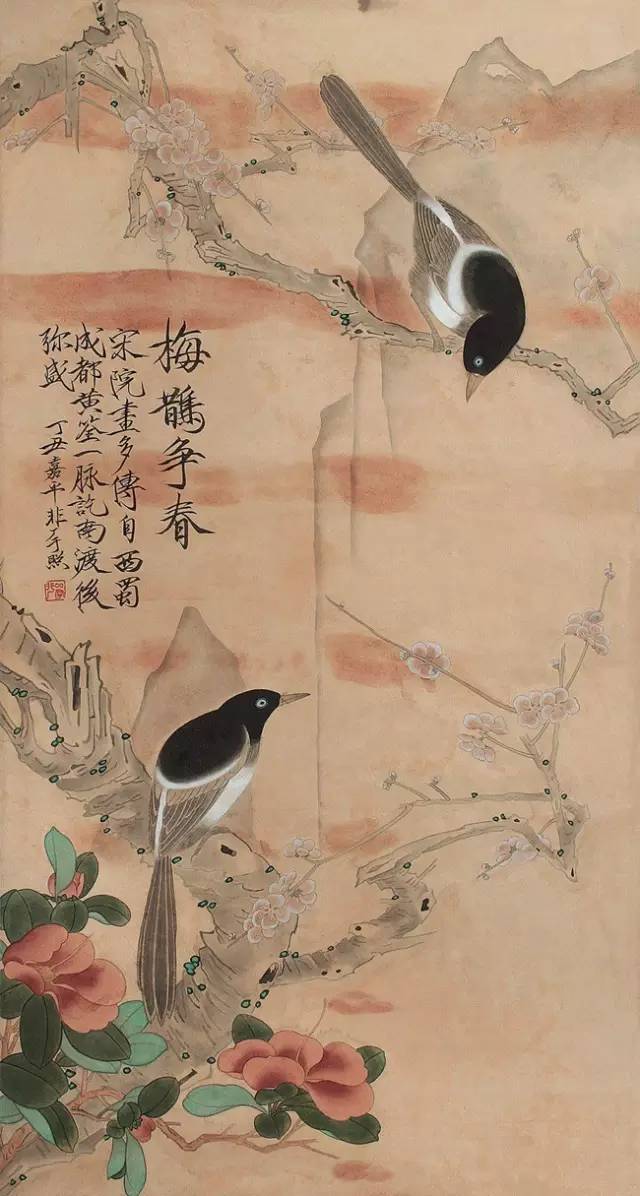 梅鵲争春
宋院畫多傳自西蜀
成都黄筌一脉訖南渡後
弥盛
丁丑嘉平非于照